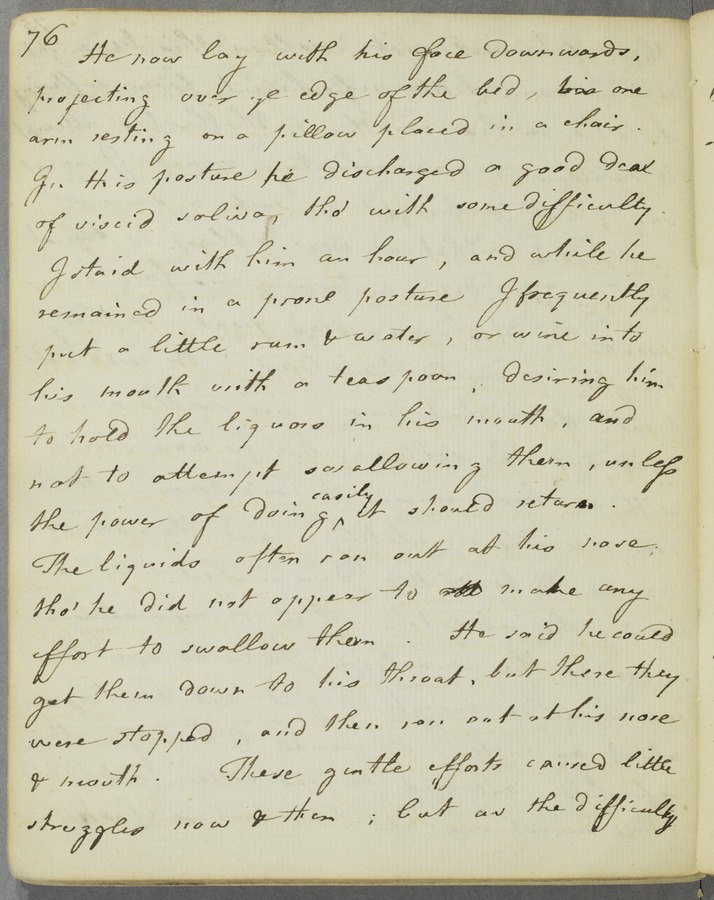 76
He now lay with his face downwards,
projecting over ye edge of the bed, one
arm resting on a pillow placed in a chair.
In this posture he discharged a good deal
of viscid saliva, tho' with some difficulty.
I staid with him an hour, and while he
remained in a prone posture I frequently
put a little rum & water, or wine into
his mouth with a teaspoon, desiring him
to hold the liquors in his mouth, and
not to attempt swallowing them, unless
easily
the power of doing ^ it should return.
The liquids often ran out at his nose;
tho' he did not appear to make any
effort to swallow them. He said he could
get them down to his throat, but there they
were stopped, and then ran out at his nose
& mouth. These gentle efforts caused little
struggles now & then; but as the difficulty